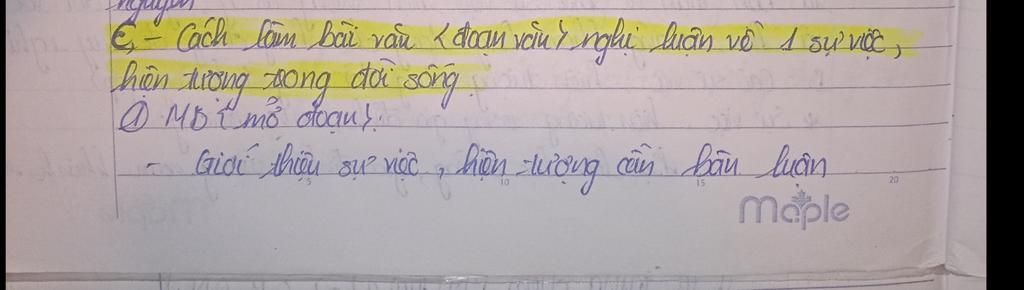 nguyên
C, - Cách làm bài văn <đoạn văn> nghị luận về 1 sự việc,
hiện tượng trong đời sống
① MB {mở đoạn}:
- Giới thiệu sự việc, hiện tượng cần bàn luận
5 10 15 20
Maple